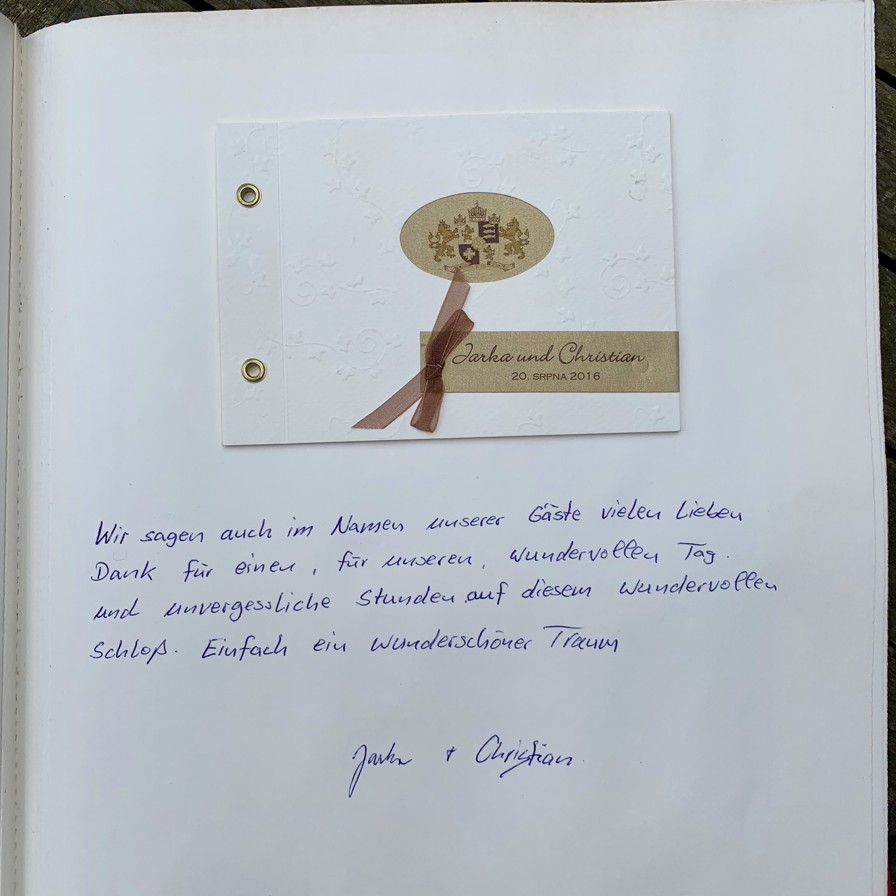 Jarka und Christian
20. SRPNA 2016
Wir sagen auch im Namen unserer Gäste vielen lieben
Dank für einen, für unseren, wundervollen Tag.
und unvergessliche Stunden auf diesem wundervollen
Schloß. Einfach ein wunderschöner Traum
Jarka + Christian